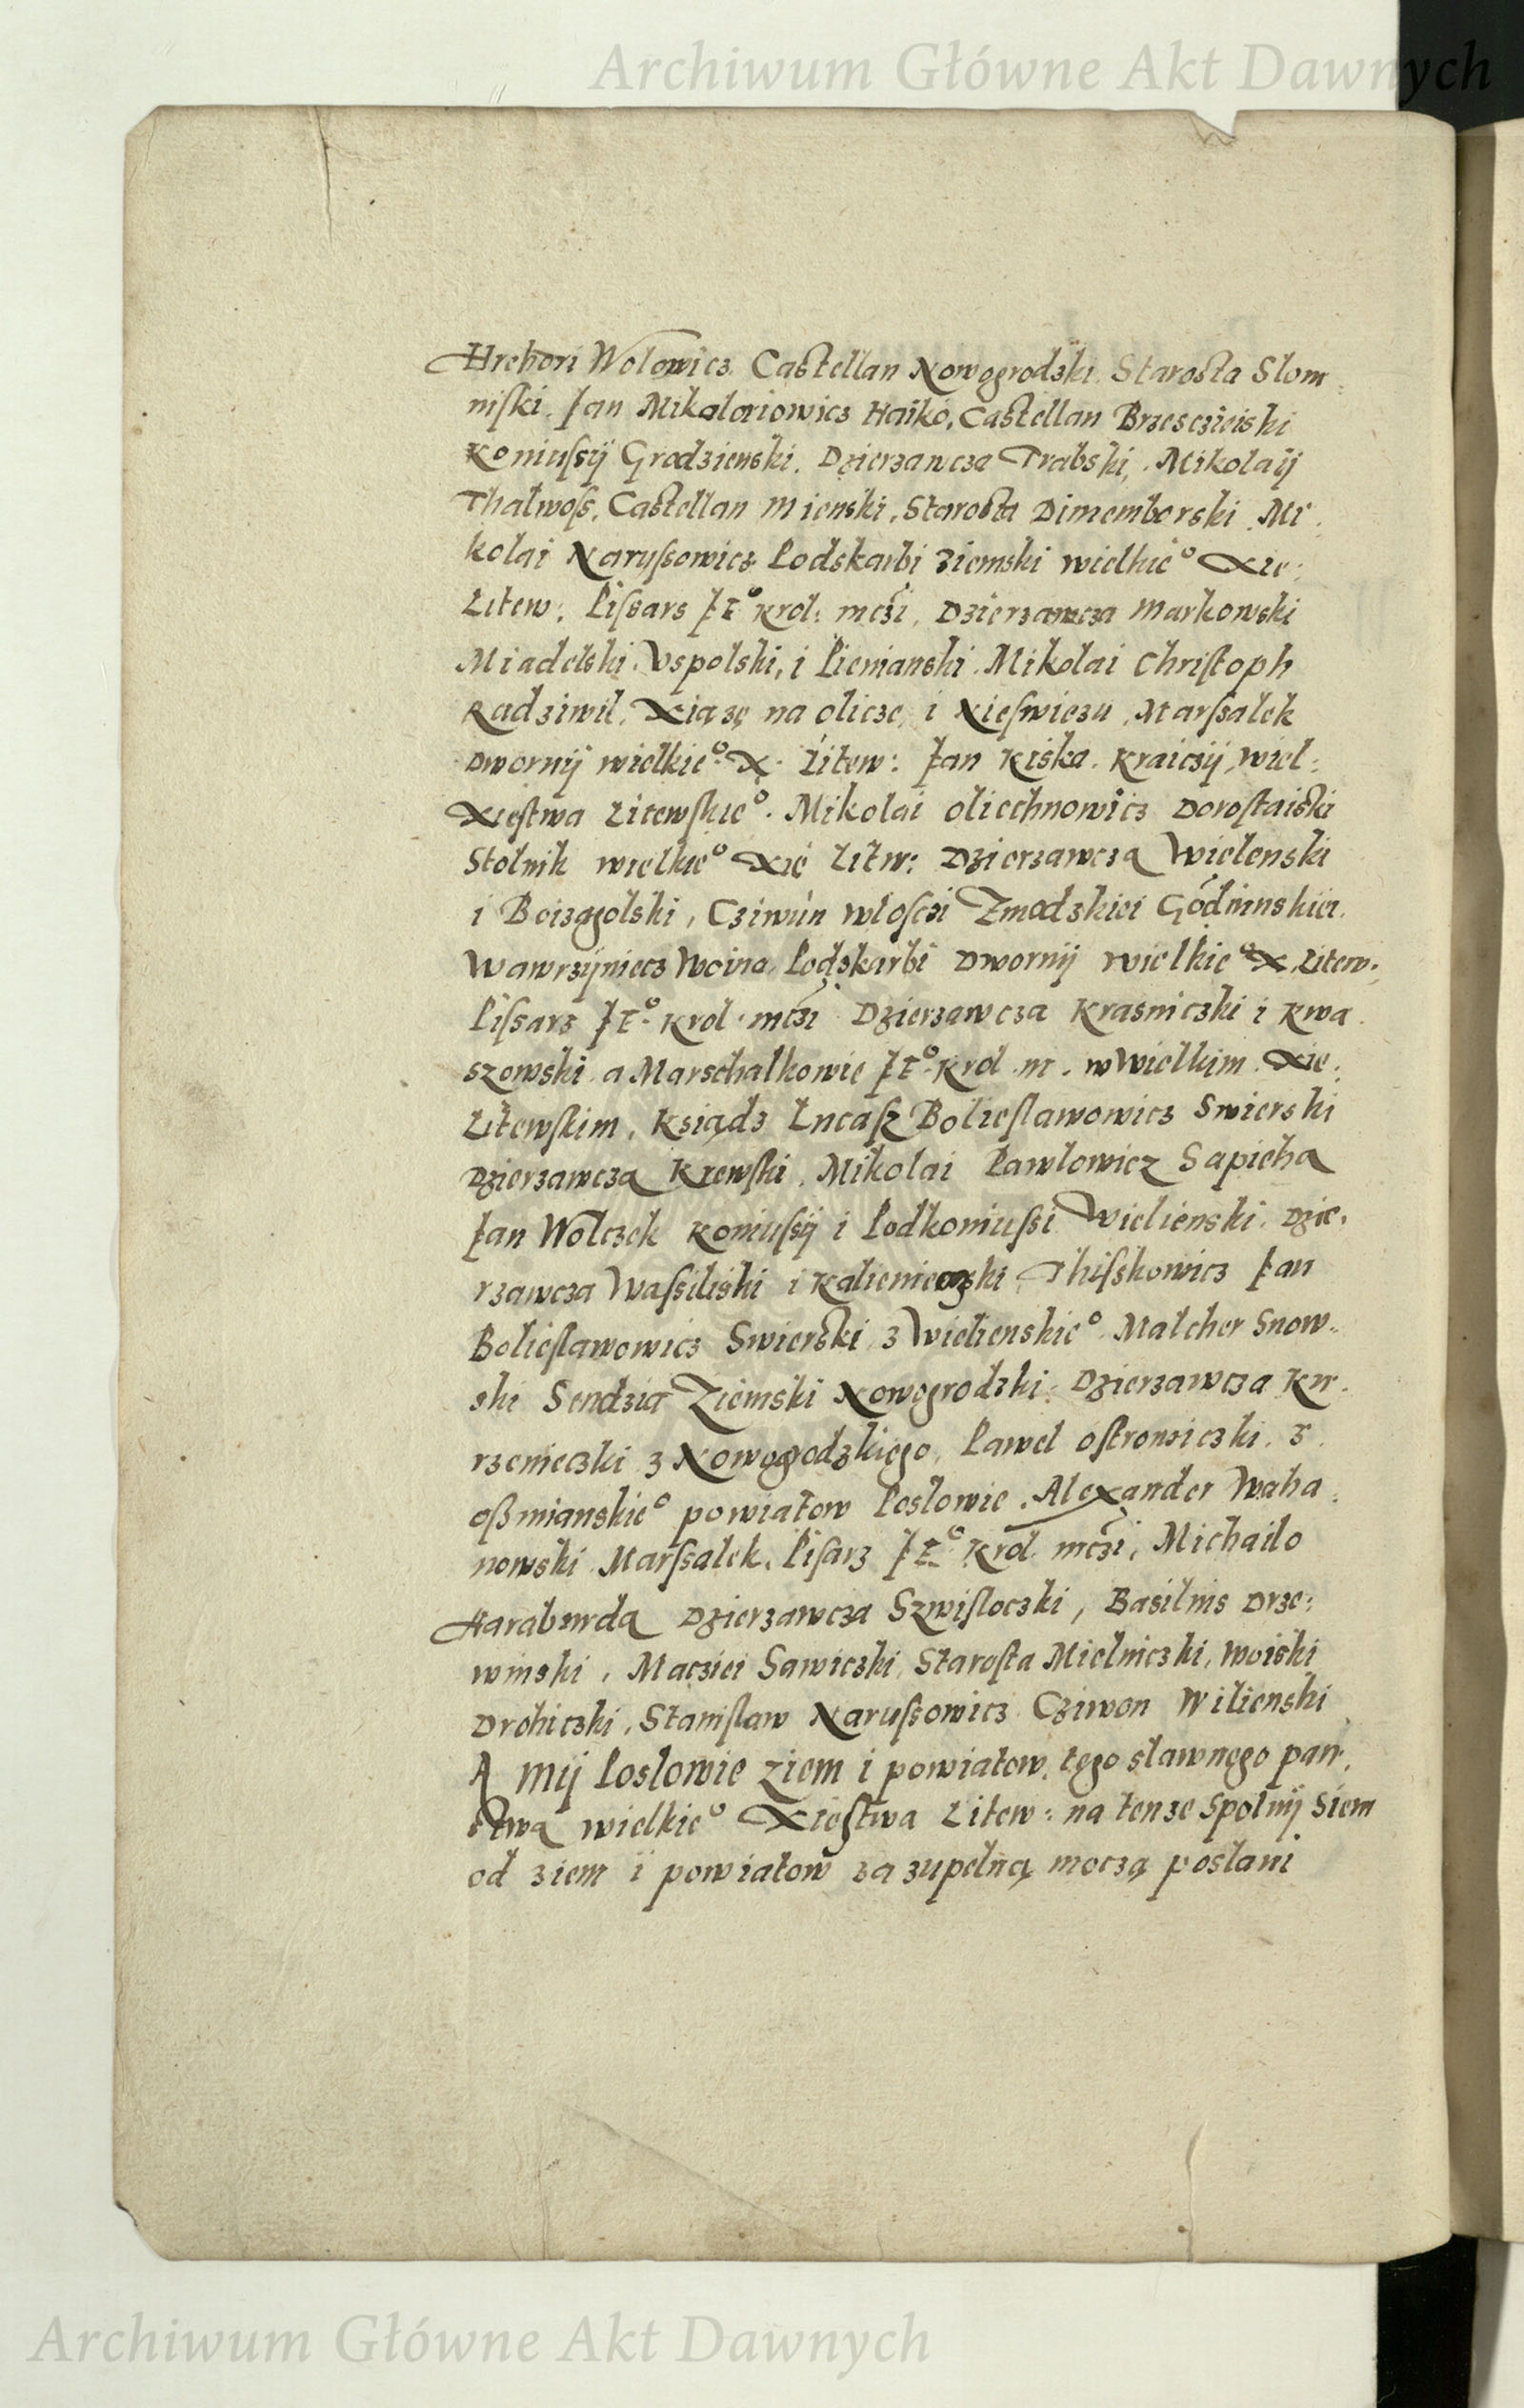 Archiwum Główne Akt Dawnych
Hrehori Wolowicz Castellan Nowogrodzki. Starosta Slom
niski. Jan Mikolaiowicz Haiko, Castellan Brzescieiski
Koniussÿ Grodzienski. Dzierzawcza Trabski, Mikolaÿ
Thalwoss, Castellan Mienski, Starosta Dimemborski Mi
kolai Narussowicz Podskarbi Ziemski wielkieº Xie:
Litew: Pissarz JEº Krol: mczi, Dzierzawcza Markowski
Miadelski Vspolski, i Pienianski Mikolai Christoph
Radziwil, Xiązę na olicze i Nieswiezu, Marssalek
Dwornÿ wielkieº X Litew: Jan Kiska Kraiczÿ, wiel:
Xiestwa Litewskieº. Mikolai oliechnowicz Dorostaiski
Stolnik wielkieº Xie Litw: Dzierzawcza Wielenski
i Boizgolski, Cziwun wlosczi Zmodzkiei Gódinnskiei.
Wawrzÿniecz Woina, Podskarbi Dwornÿ wielkieº X Litew:
Pissarz JEº Krol mczi Dzierzawcza Krasniczki i Kwa
szowski a Marschalkowie JEº Krol m. w Wielkim Xie:
Litewskim, Ksiądz Lucasz Bolieslawowicz Swierski
Dzierzawcza Krewski. Mikolai Pawlowicz Sapieha
Jan Wolczek Koniussÿ i Podkoniussi Wielienski. Dzie.
rzawcza Wassiliski i Kalienieczki, Thiskowicz Jan
Bolieslawowicz Swierski z Wielienskieº Malcher Snow.
ski Sendzia Ziemski Nowogrodzki: Dzierzawcza Kur.
rzenieczki z Nowogrodzkiego, Pawel ostrowiczki. z
oszmianskieº powiatow Poslowie. Alexander Waha
nowski Marssalek. Pisarz JEº Krol mczi, Michailo
Haraburda Dzierzawcza Szwisloczki, Basilius Drze:
winski, Macziei Sawiczki, Starosta Mielniczki, woiski
Drohiczki, Stanislaw Narussowicz Cziwon Wilienski
A mÿ Poslowie ziem i powiatow tego slawnego pań
stwa wielkieº Xiestwa Litew: na tenze Spolnÿ Siem
od ziem i powiatow za zupelną moczą poslani
Archiwum Główne Akt Dawnych